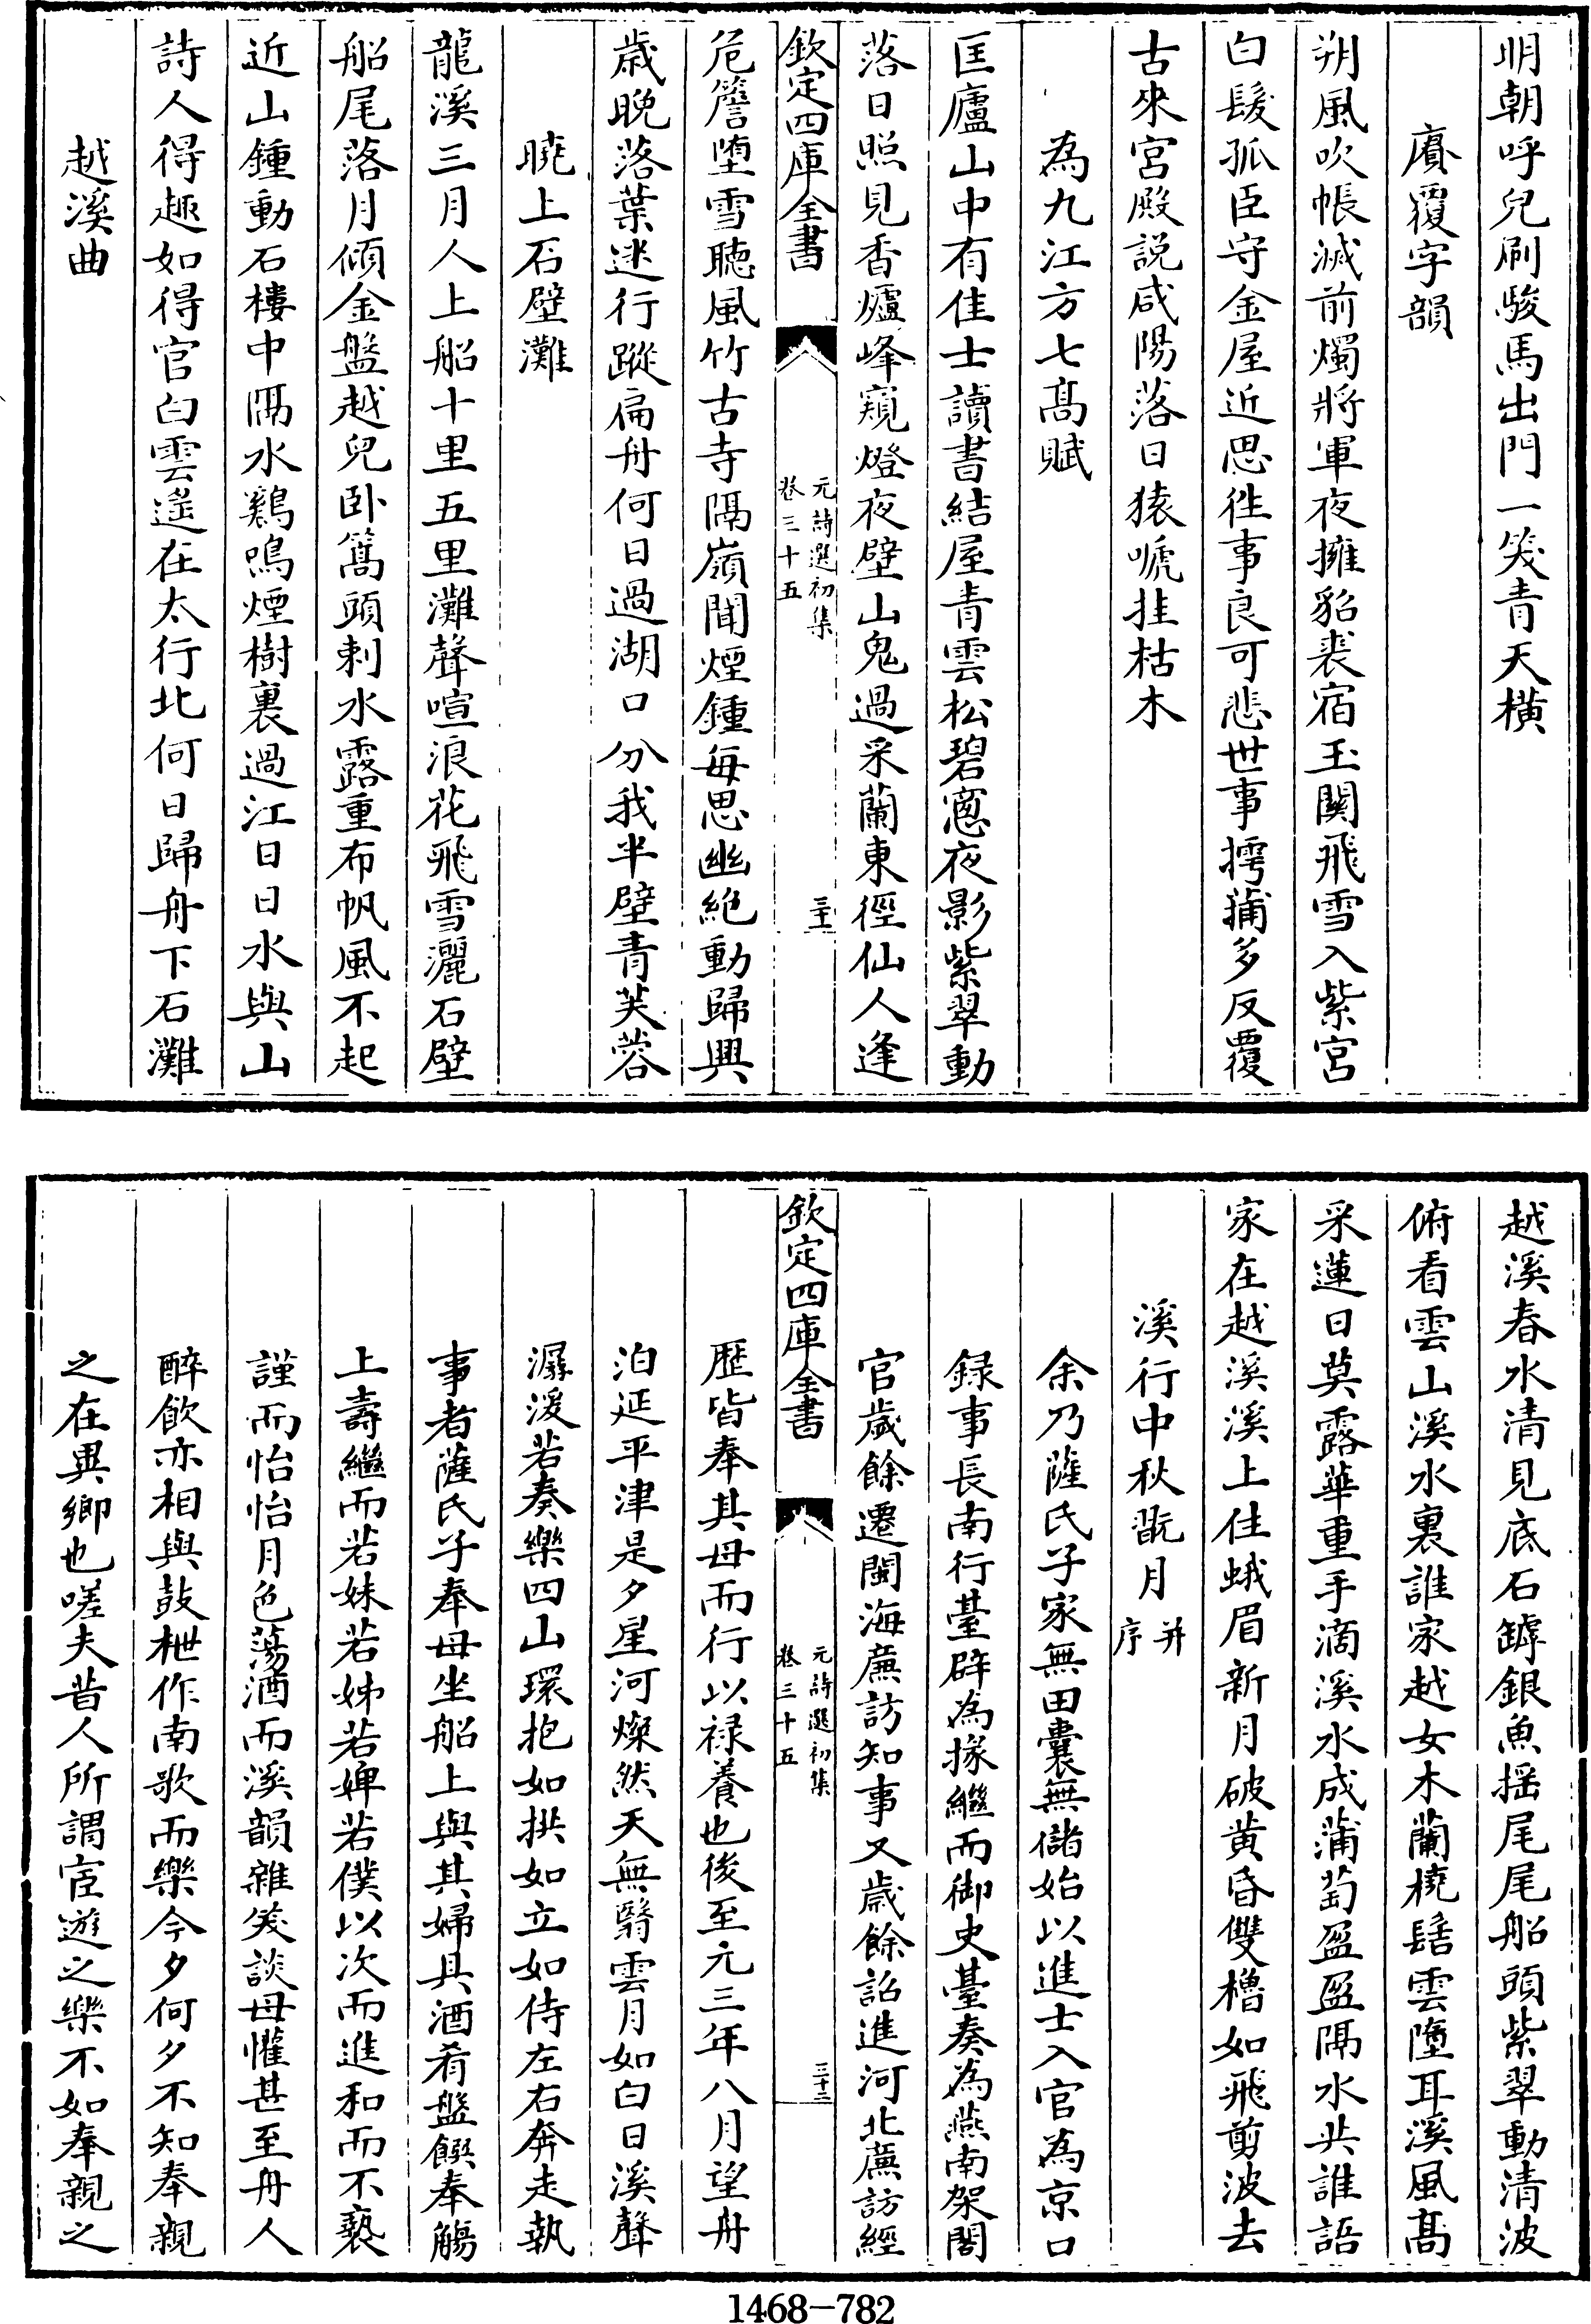 明朝呼兒刷駿馬出門一笑青天橫
賡覆字韻
朔風吹帳滅前燭將軍夜擁貂裘宿玉關飛雪入紫宮
白髮孤臣守金屋近思往事良可悲世事摴蒱多反覆
古來宮殿説咸陽落日猿嗁挂枯木
為九江方七高賦
匡廬山中有佳士讀書結屋青雲松碧窻夜影紫翠動
落日照見香爐峰窺燈夜壁山鬼過采蘭東徑仙人逢
欽定四庫全書
元詩選初集
卷三十五
三十二
危簷墮雪聽風竹古寺隔嶺聞煙鍾每思幽絶動歸興
歲晚落葉迷行蹤扁舟何日過湖口分我半壁青芙蓉
曉上石壁灘
龍溪三月人上船十里五里灘聲喧浪花飛雪灑石壁
船尾落月傾金盤越兒卧篙頭刺水露重布帆風不起
近山鍾動石樓中隔水鷄鳴煙樹裏過江日日水與山
詩人得趣如得官白雲遥在太行北何日歸舟下石灘
越溪曲
越溪春水清見底石罅銀魚揺尾尾船頭紫翠動清波
俯看雲山溪水裏誰家越女木蘭橈髻雲墮耳溪風髙
采蓮日莫露華重手滴溪水成蒲萄盈盈隔水共誰語
家在越溪溪上住蛾眉新月破黄昏雙櫓如飛剪波去
溪行中秋翫月并序
余乃薩氏子家無田囊無儲始以進士入官為京口
録事長南行臺辟為掾繼而御史臺奏為燕南架閣
官歲餘遷閩海亷訪知事又歲餘詔進河北亷訪經
欽定四庫全書
元詩選初集
卷三十五
三十三
歴皆奉其母而行以禄養也後至元三年八月望舟
泊延平津是夕星河燦然天無翳雲月如白日溪聲
潺湲若奏樂四山環抱如拱如立如侍左右奔走執
事者薩氏子奉母坐船上與其婦具酒肴盤饌奉觴
上壽繼而若妹若姊若婢若僕以次而進和而不褻
謹而怡怡月色蕩酒而溪韻雜笑談母懽甚至舟人
醉飲亦相與鼓枻作南歌而樂今夕何夕不知奉親
之在異鄉也嗟夫昔人所謂宦遊之樂不如奉親之
1468-782